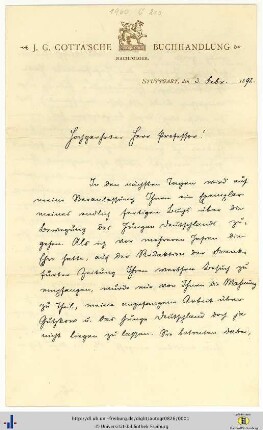 J. G. COTTA'SCHE BUCHHANDLUNG
NACHFOLGER.
STUTTGART, den 3. Febr. 1892.
Hochgeehrter Herr Professor!
In den nächsten Tagen wird auf
meine Veranlassung Ihnen ein Exemplar
meines endlich fertigen Buchs über die
Bewegung des Jungen Deutschlands zu-
gehen. Als ich vor mehreren Jahren die
Ehre hatte, auf der Redaktion der Frank-
furter Zeitung Ihren werthen Besuch zu
empfangen, wurde mir von Ihnen die Mahnung
zu Theil, meine angefangene Arbeit über
Gutzkow u. das Junge Deutschland doch ja
nicht liegen zu lassen. Sie betonten dabei,
© Universitätsbibliothek Freiburg